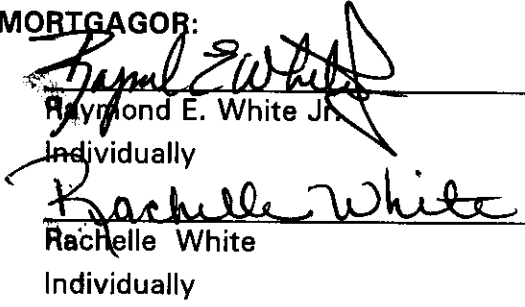 MORTGAGOR:
Raymond E White Jr
Raymond E. White Jr.
Individually
Rachelle White
Rachelle White
Individually